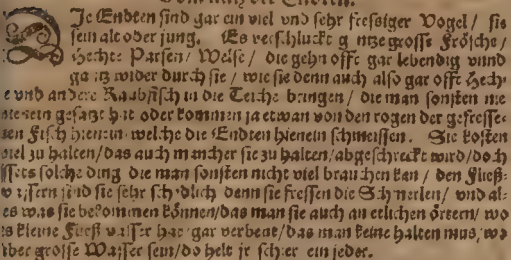 Je Endten sind gar ein viel vnd sehr fressiger Vogel / sie
sein alt oder jung. Es verschluckt gantze grosse Frösche /
Hechte Parsen / Welse / die gehn offt gar lebendig vnnd
gantz wider durch sie / wie sie denn auch also gar offt Hech-
e vnd andere Raubfisch in die Teiche bringen / die man sonsten nie
hienein gesatzt hat oder kommen ja etwan von den rogen der gefresse-
nen Fisch hienein welche die Endten hienein schmeissen. Sie kosten
viel zu halten / das auch mancher sie zu halten / abgeschreckt wird / doch
solche ding die man sonsten nicht viel brauchen kan / den Fließ-
wassern sind sie sehr schedlich denn sie fressen die Schmerlen / vnd al-
es was sie bekommen können / das man sie auch an etlichen örtern / wo
s kleine Fließ wasser hat gar verbeut / das man keine halten mus / wo
aber grosse Wasser sein / do helt jr schier ein jeder.